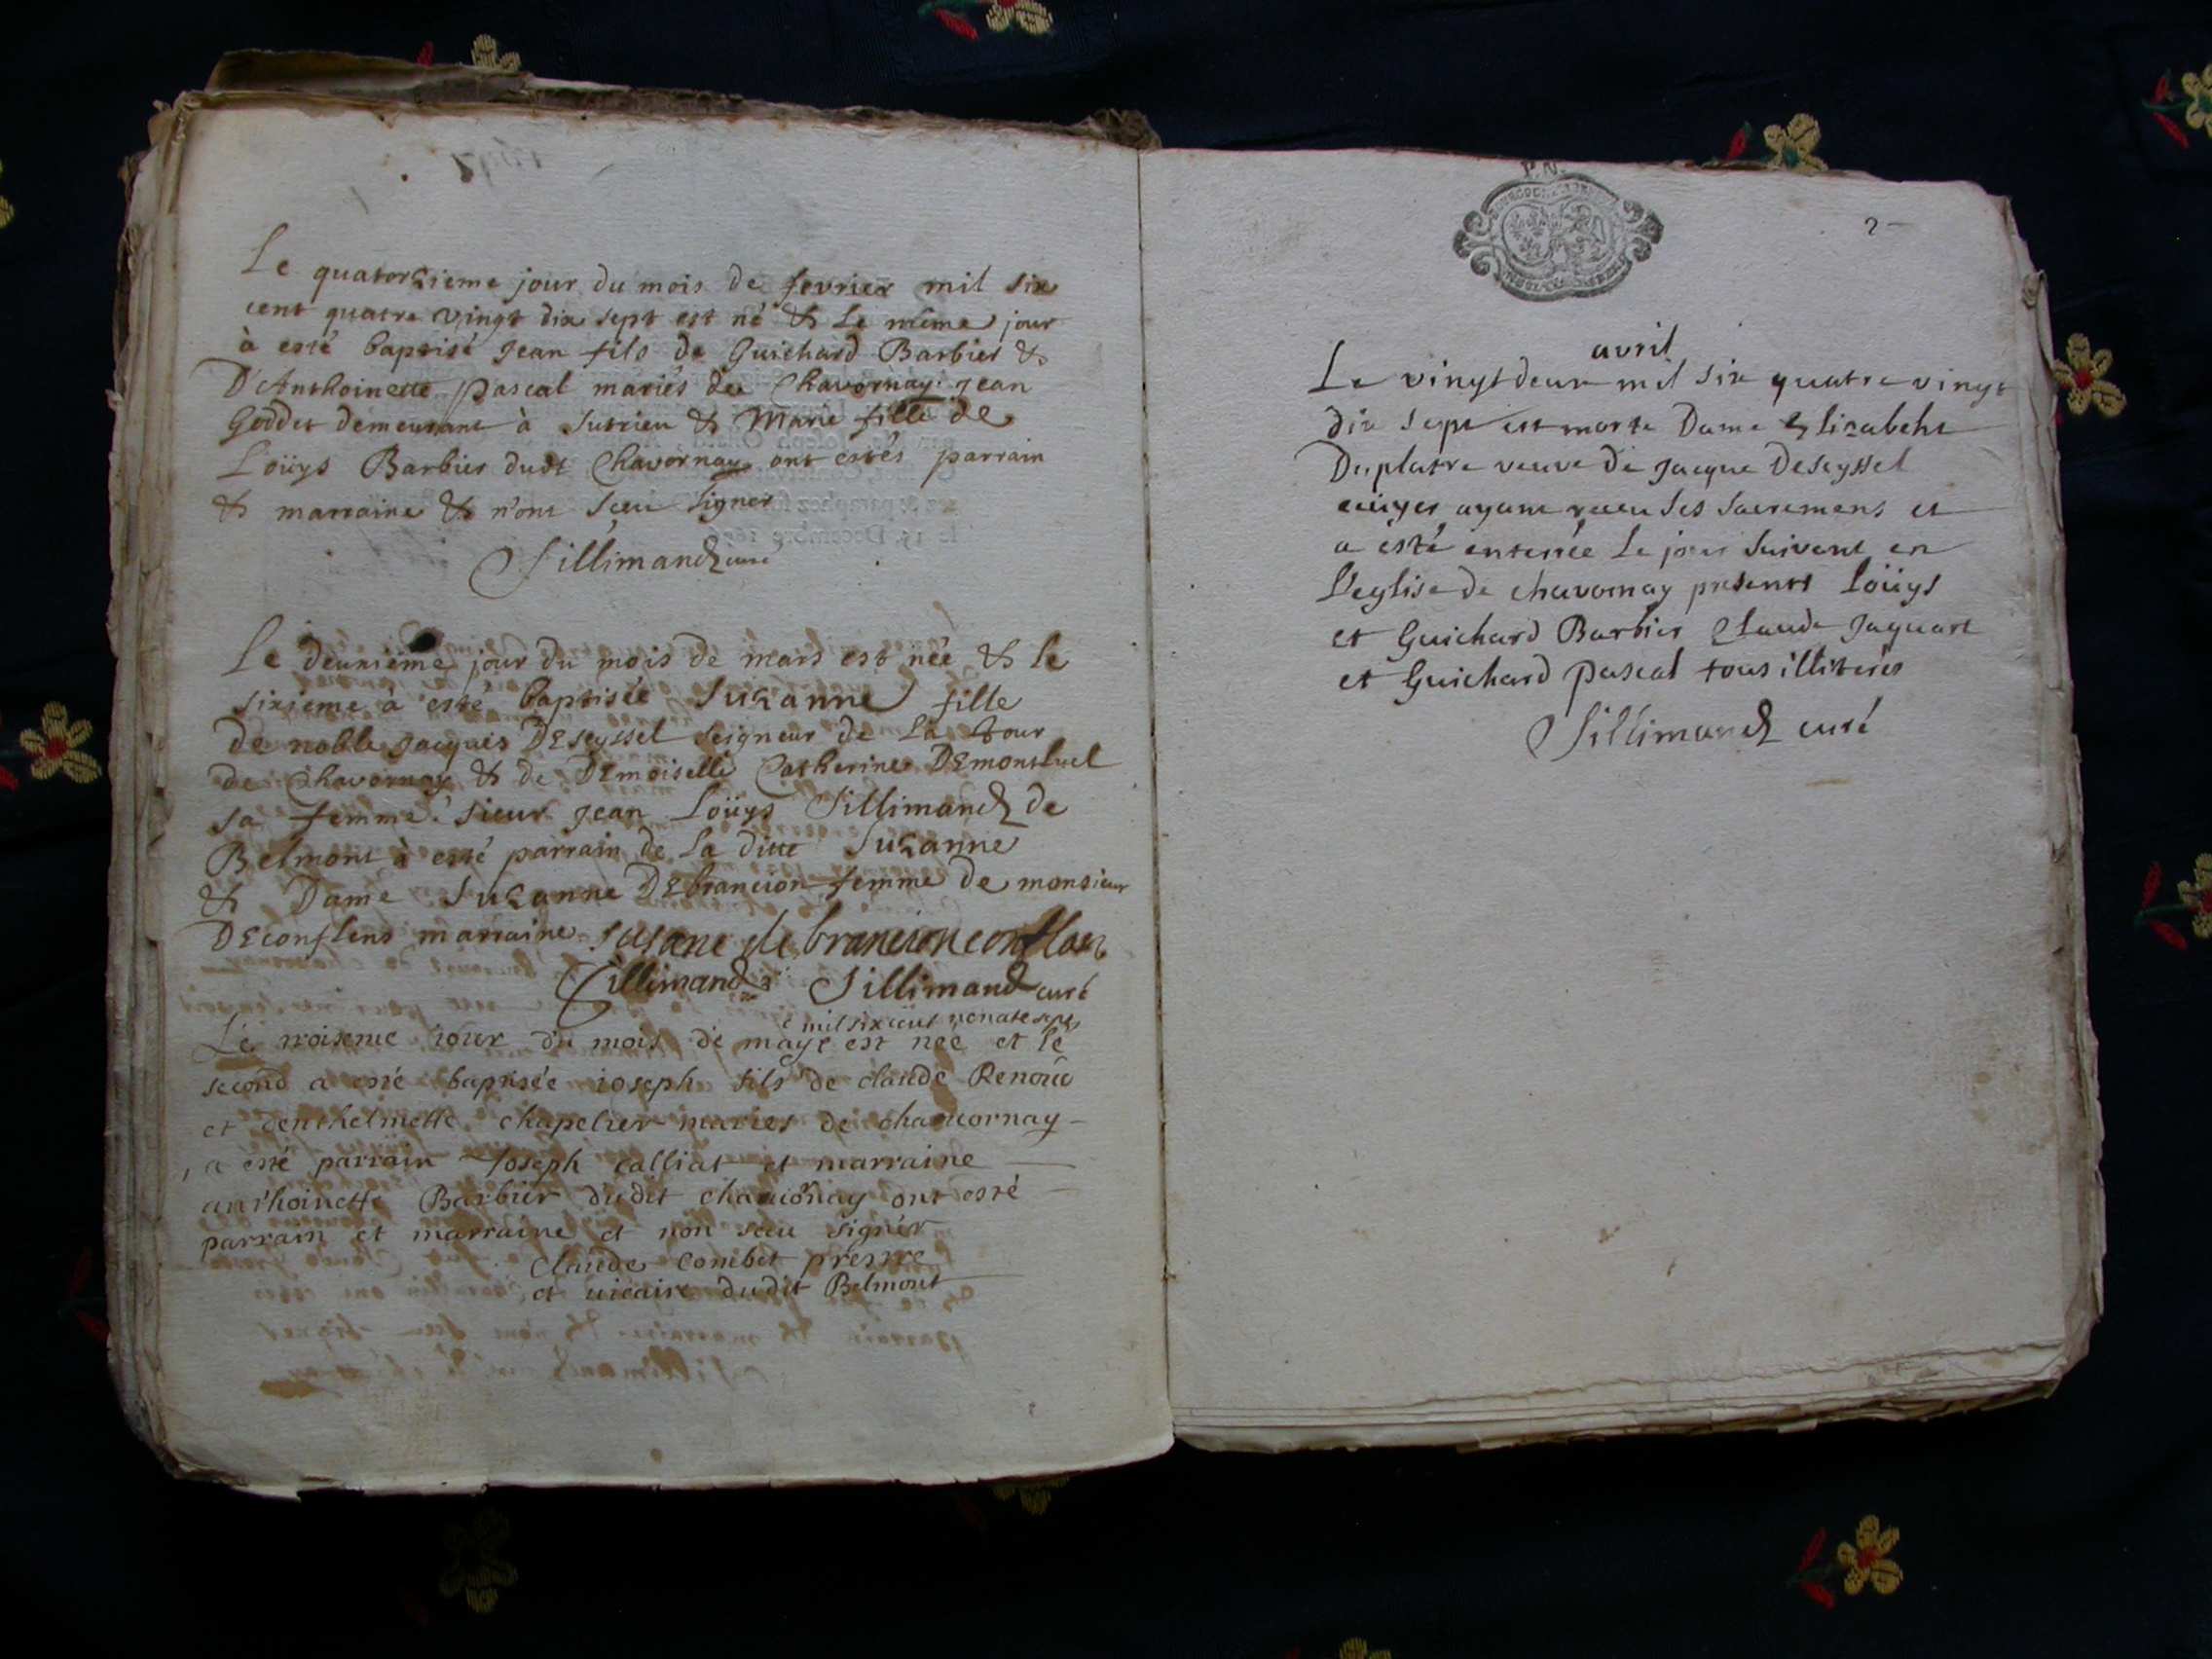 Le quatorzieme jour du mois de fevrier mil six
cent quatre vingt dix sept est né & le même jour
à esté baptisé Jean fils de Guichard Barbier &
D'Anthoinette pascal mariés de Chavornay. Jean
Goddet demeurant à Sutrieu & Marie fille de
Loüys Barbier dudt Chavornay ont estés parrain
& marraine & n'ont sceu signer
Sillimand curé
Le deuxième jour du mois de mars est née & le
sixieme à esté baptisée Suzanne fille
de noble Jacques DEseyssel seigneur de La tour
de Chavornay & de DEmoiselle Catherine DEmontluel
sa femme. sieur Jean Loüys Sillimand de
Belmont à esté parrain de La ditte Suzanne
& Dame Suzanne DEbrancion femme de monsieur
DEconflens marraine. susane de brancion conflans
Sillimand Sillimand curé
mil six cent nonate sept
Le troiseme iour du mois de maye est née et le
second a esté baptisée ioseph fils de claude Renoüe
et denthelmette chapelier maries de chavuornay
a esté parrain Joseph calliat et marraine
anthoinette Barbier dudit chauiornay ont esté
parrain et marraine et non sceu signér
claude Combet prestre
et uicaire dudit Belmont
P. N.
2
avril
Le vingtdeux mil six quatre vingt
dix sept est morte Dame Elizabeht
Duplatre veuve de Jacque Deseyssel
ecuiyer ayant receu ses sacremens et
a esté enterrée le jour suivant en
L'eglise de chavornay presents Loüys
et Guichard Barbier Claude Jaquart
et Guichard pascal tous illiterés
Sillimand curé